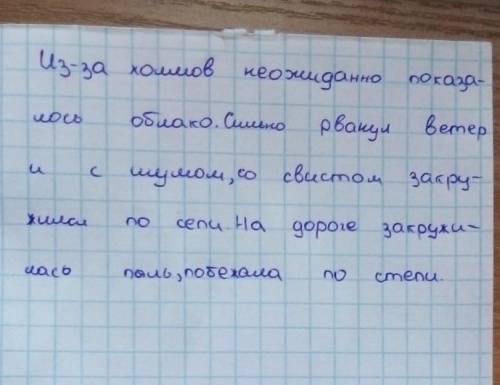 Из-за холмов неожиданно показа-
лось облако. Сильно рванул ветер
и с шумом, со свистом закру-
жился по сепи. На дороге закружи-
лась пыль, побежала по степи.